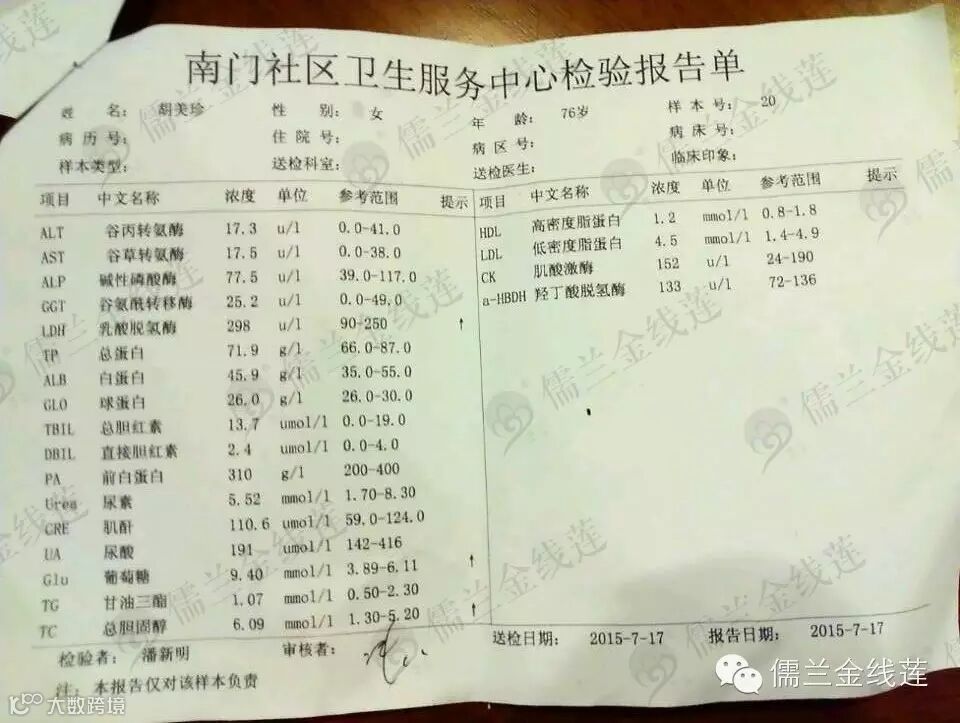 南门社区卫生服务中心检验报告单
姓 名： 胡美珍 性 别： 女 年 龄： 76岁 样 本 号： 20
病 历 号： 住 院 号： 病 区 号： 病 床 号：
样本类型： 送检科室： 送检医生： 临床印象：
项目 中文名称 浓度 单位 参考范围 提示
ALT 谷丙转氨酶 17.3 u/l 0.0-41.0
AST 谷草转氨酶 17.5 u/l 0.0-38.0
ALP 碱性磷酸酶 77.5 u/l 39.0-117.0
GGT 谷氨酰转移酶 25.2 u/l 0.0-49.0
LDH 乳酸脱氢酶 298 u/l 90-250 ↑
TP 总蛋白 71.9 g/l 66.0-87.0
ALB 白蛋白 45.9 g/l 35.0-55.0
GLO 球蛋白 26.0 g/l 26.0-30.0
TBIL 总胆红素 13.7 umol/l 0.0-19.0
DBIL 直接胆红素 2.4 umol/l 0.0-4.0
PA 前白蛋白 310 g/l 200-400
Urea 尿素 5.52 mmol/l 1.70-8.30
CRE 肌酐 110.6 umol/l 59.0-124.0
UA 尿酸 191 umol/l 142-416
Glu 葡萄糖 9.40 mmol/l 3.89-6.11 ↑
TG 甘油三酯 1.07 mmol/l 0.50-2.30
TC 总胆固醇 6.09 mmol/l 1.30-5.20 ↑
项目 中文名称 浓度 单位 参考范围 提示
HDL 高密度脂蛋白 1.2 mmol/l 0.8-1.8
LDL 低密度脂蛋白 4.5 mmol/l 1.4-4.9
CK 肌酸激酶 152 u/l 24-190
a-HBDH 羟丁酸脱氢酶 133 u/l 72-136
检验者： 潘新明 审核者： 送检日期： 2015-7-17 报告日期： 2015-7-17
注：本报告仅对该样本负责
儒兰金线莲
大数跨境